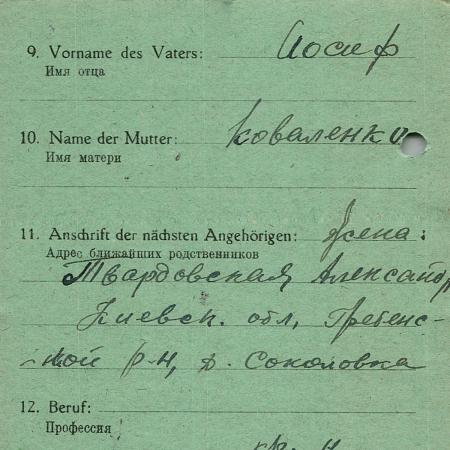 9. Vorname des Vaters: Иосиф
Имя отца
10. Name der Mutter: Коваленко
Имя матери
11. Anschrift der nächsten Angehörigen: Жена:
Адрес ближайших родственников
Твардовская Александр
Киевск. обл. Гребенс-
-кой р-н, д. Соколовка
12. Beruf:
Профессия